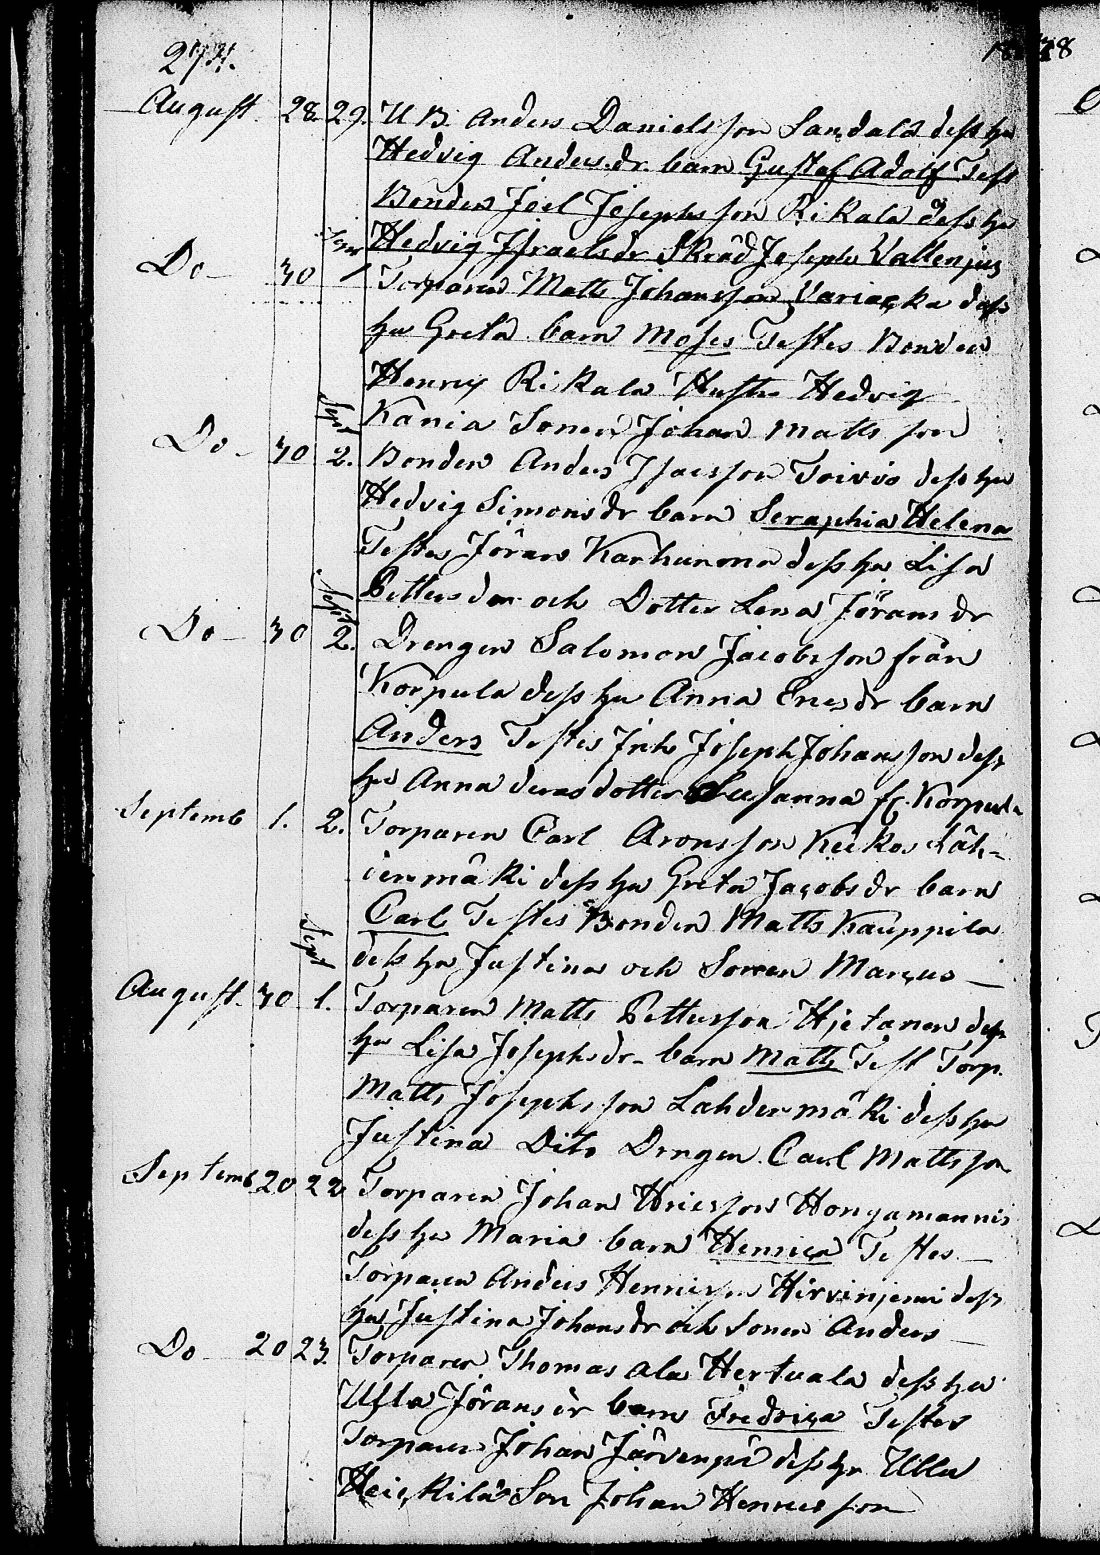 274.
1838
August. 28. 29. U B. Anders Danielsson Sandala dess hu
Hedvig Anders.dr. barn Gustaf Adolf Test
Bonden Joel Josephsson Rikala dess hu
Hedvig Israelsdr Skräd Joseph Vallenius
Do 30 1 Torparen Matts Johansson dess
hu Greta barn Moses Testes Bonden
Henric Rikala Hustru Hedvig
Kania Sonen Johan Mattsson
Do 30 Sept 2. Bonden Anders Isacsson Toivio dess hu
Hedvig Simonsdr barn Seraphia Helena
Testes Jöran Karhunoma dess hu Lisa
Pettersdr och Dotter Lena Jöransdr
Do 30 Sept 2. Drengen Salomon Jacobsson från
Korpula dess hu Anna Ericsdr barn
Anders Testes Inh Joseph Johansson dess
hu Anna deras dotter Susanna fr. Korpula
Septemb 1. 2. Torparen Carl Aronsson Keikos Läh-
denmäki dess hu Greta Jacobsdr barn
Carl Testes Bonden Matts Kauppila
dess hu Justina och Sonen Marcus
August 30 Sept 1. Torparen Matts Pettersson Hjetanen dess
hu Lisa Josephsdr barn Matts Test Torp.
Matts Josephsson Lahdenmäki dess hu
Justina Dito Drengen Carl Mattsson
Septemb 20 22 Torparen Johan Hricsson Hongamannis
dess hu Maria barn Henrica Testes
Torparen Anders Henricsson Hirvinjemi dess
hu Justina Johansdr och Sonen Anders
Do 20 23. Torparen Thomas Ala Hertuala dess hu
Ulla Jöransdr barn Fredrica Testes
Torparen Johan Järvenpä dess hu Ulla
Heickilä Son Johan Henricsson